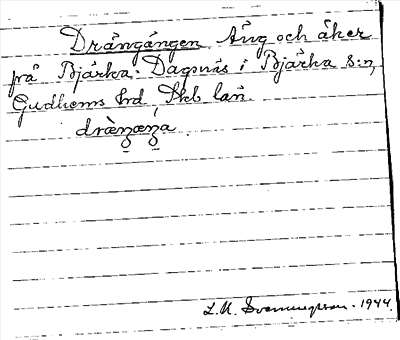 Drängängen Äng och åker
på Bjärka-Dagsnäs i Bjärka s:n,
Gudhems hrd, Skb. län.
L. M. Svenungsson. 1944.